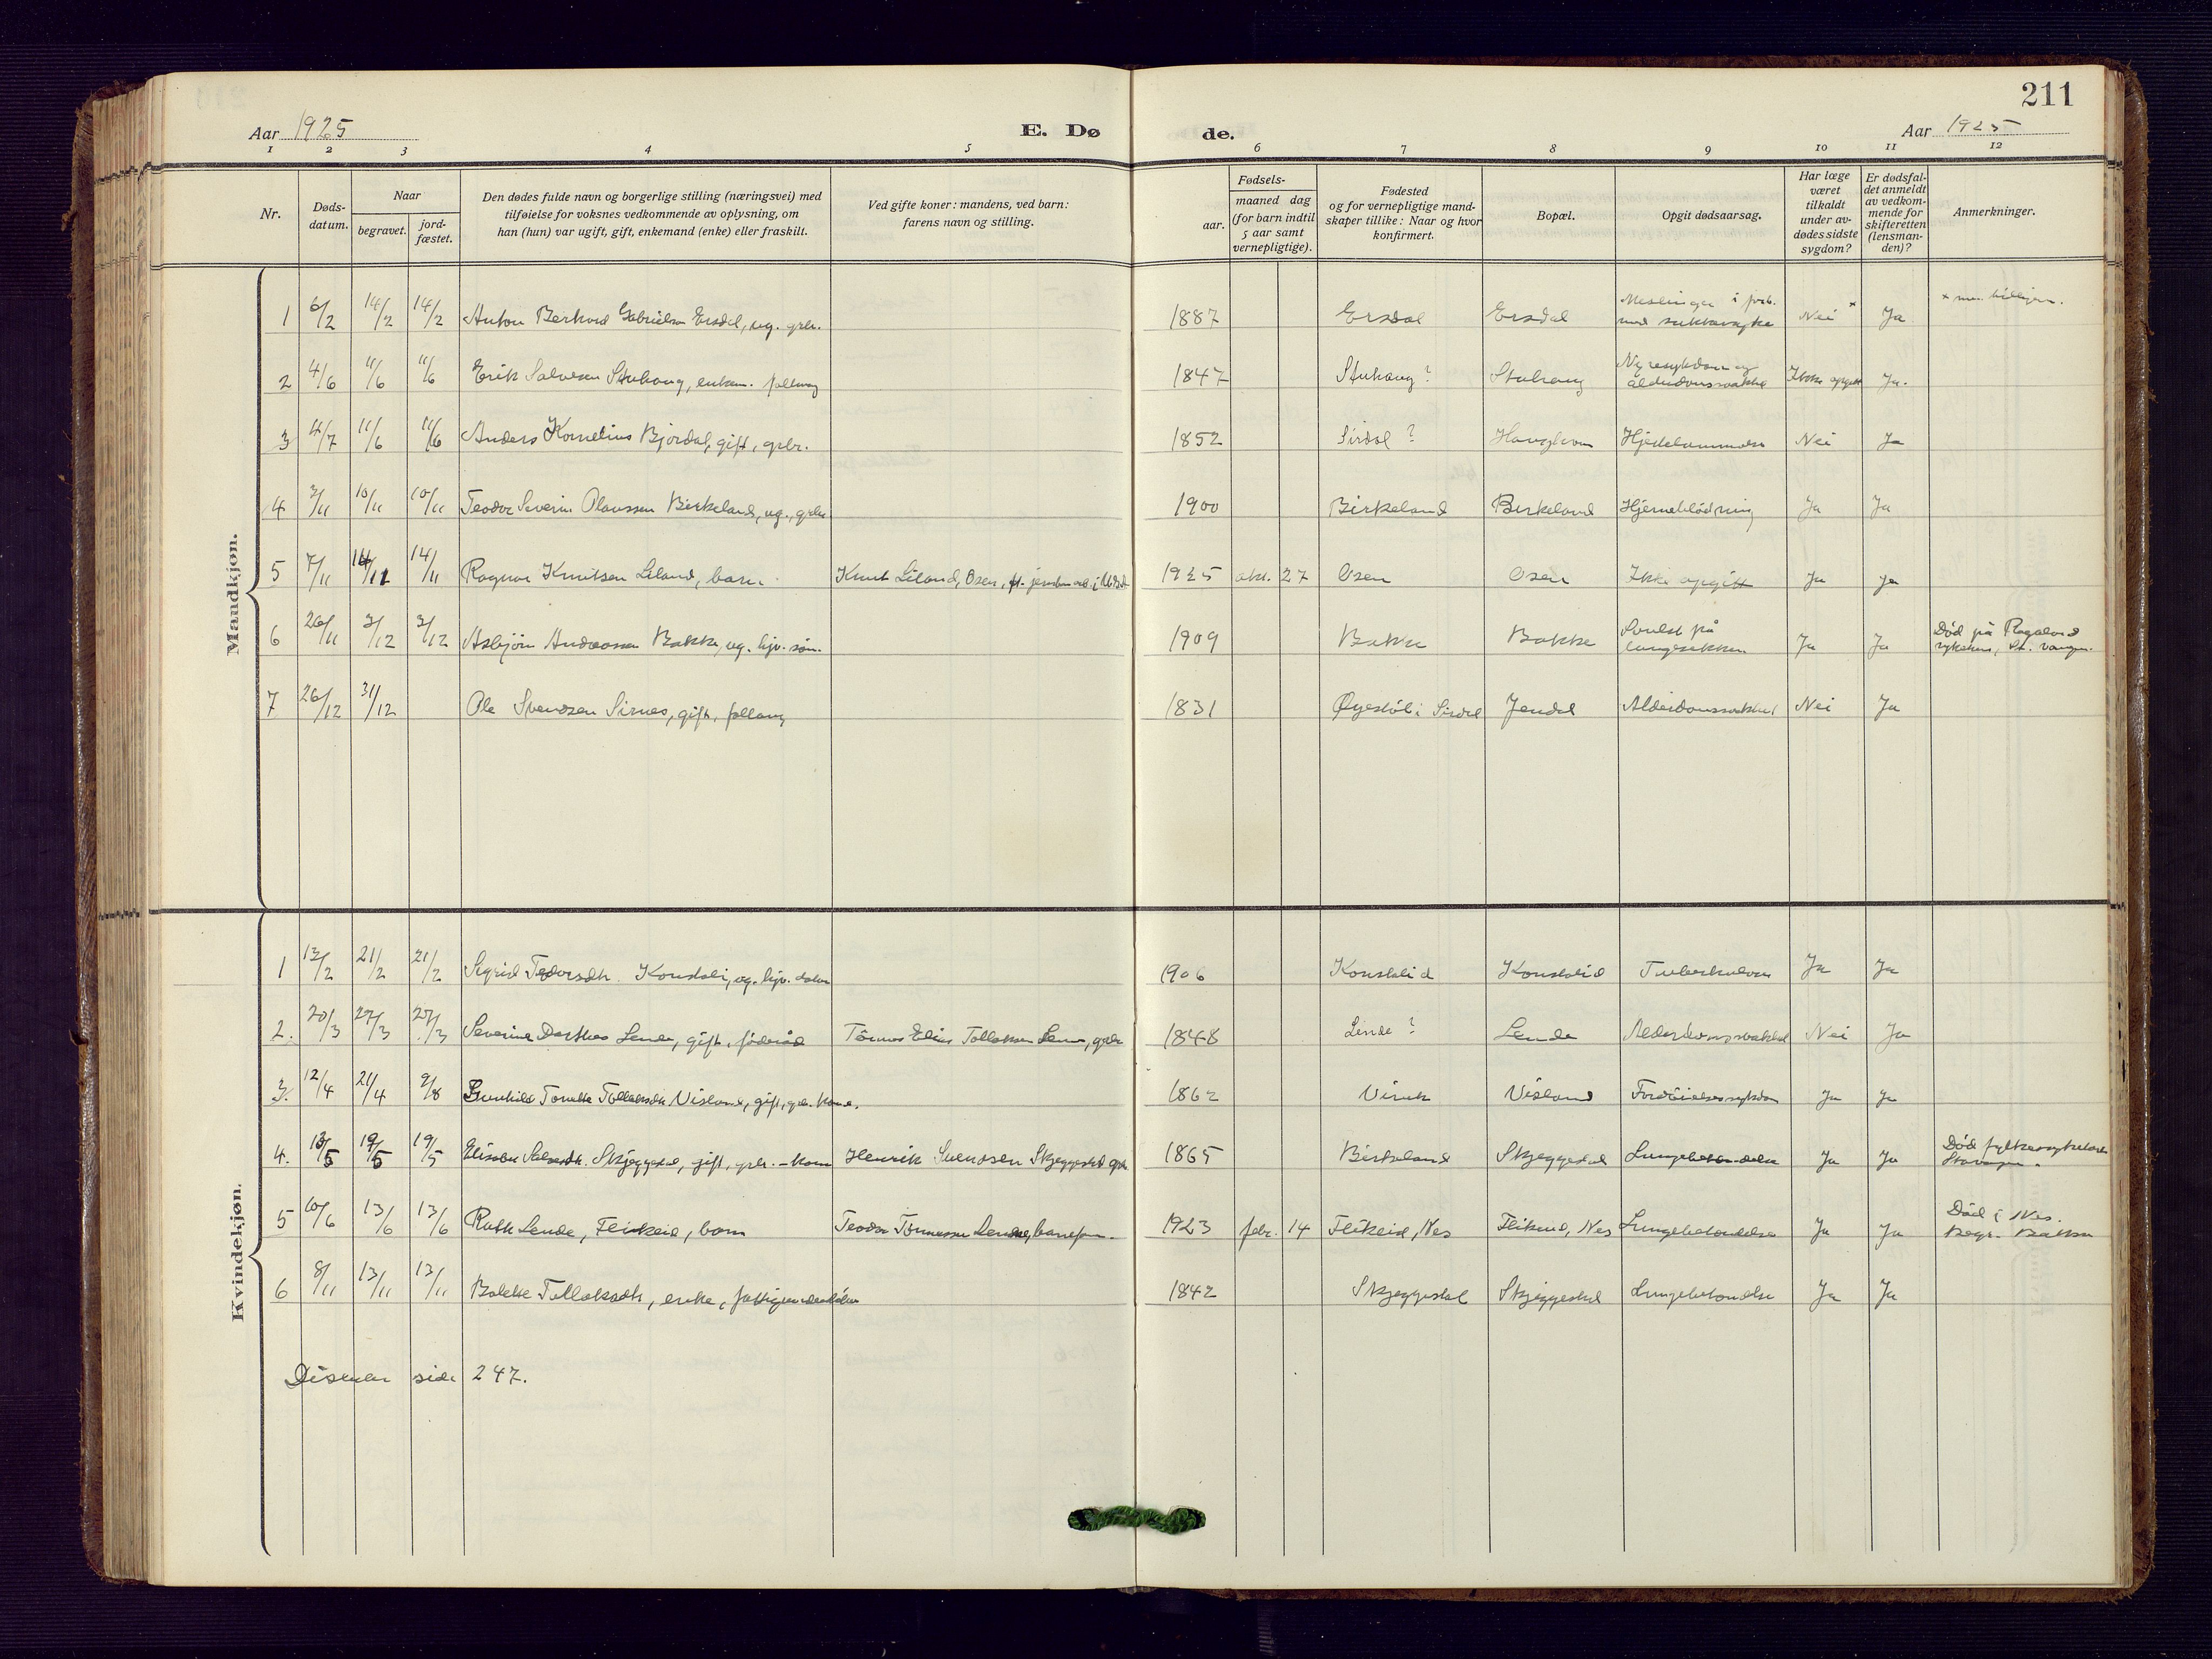 211
Aar 1925 E. Dø de. Aar 1925
1 2 3 4 5 6 7 8 9 10 11 12
Nr.
Døds-
datum.
Naar
begravet.
jord-
fæstet.
Den dødes fulde navn og borgerlige stilling (næringsvei) med
tilføielse for voksnes vedkommende av oplysning, om
han (hun) var ugift, gift, enkemand (enke) eller fraskilt.
Ved gifte koner: mandens, ved barn:
farens navn og stilling.
Fødsels-
aar.
maaned dag
(for barn indtil
5 aar samt
vernepligtige).
Fødested
og for vernepligtige mand-
skaper tillike: Naar og hvor
konfirmert.
Bopæl.
Opgit dødsaarsag.
Har læge
været
tilkaldt
under av-
dødes sidste
sygdom?
Er dødsfal-
det anmeldt
av vedkom-
mende for
skifteretten
(lensman-
den)?
Anmerkninger.
Mandkjøn.
1 6/2 14/2 14/2 Anton Berthord Gabrielsen Ersdal, ug. gbr. 1887 Ersdal Ersdal Meslinger i forb. med Nei × Ja × men
2 4/6 11/6 11/6 Erik Salvesen Stuhaug, enkem. 1847 Stuhaug? Stuhaug Nyresykdom og alderdomssvakhet Ikke opgitt Ja.
3 4/7 11/6 11/6 Anders Kornelius Bjordal, gift, gbr. 1852 Sirdal? Haughom Hjertelammelse Nei Ja
4 3/11 10/11 10/11 Teodor Severin Olaussen Birkeland, ug., gbr. 1900 Birkeland Birkeland Hjerneblødning Ja Ja
5 7/11 14/11 14/11 Ragnar Knutsen Liland, barn. Knut Liland, Osen, 1925 okt. 27 Osen Osen Ikke opgitt Ja Ja
6 26/11 3/12 3/12 Asbjørn Andreassen Bakke, ug. hjv. søn. 1909 Bakke Bakke Svulst på lungesekken Ja Ja Død på Rogaland sykehus, St. vanger.
7 26/12 31/12 Ole Svendsen Sirnes, gift, 1831 Øyestøl i Sirdal Jendal Alderdomssvakhet Nei Ja
Kvindekjøn.
1 13/2 21/2 21/2 Sigrid Konstali, ug. hjv. datter 1906 Konstalid Konstalid Tuberkulose Ja Ja
2. 20/3 27/3 27/3 Severine Dorthea Lende, gift, føderåd Tønnes Elias Tollaksen Lende, gbr. 1848 Lende? Lende Alderdomssvakhet Nei Ja
3. 12/4 21/4 9/8 Gunhild Tonette Tollaksdtr. Visland, gift, gbr. kone. 1862 Virak Visland Fordøielsessykdom Ja Ja
4. 13/5 19/5 19/5 Skjeggestad, gift, gbr.-kone Henrik Svendsen Skjeggestad gbr. 1865 Birkeland Skjeggestad Lungebetændelse Ja Ja Død fylkessykehuset Stavanger.
5 10/6 13/6 13/6 Ruth Lende, Flikeid, barn Teodor Tønnessen Lende, 1923 febr. 14 Flikeid, Nes Flikeid, Nes Lungebetændelse Ja Ja Død i Nes. Begr. Bakke
6 8/11 13/11 13/11 Bolette Tollaksdtr., enke, 1842 Skjeggestad Skjeggestad Lungebetændelse Ja Ja
Disenter side 247.